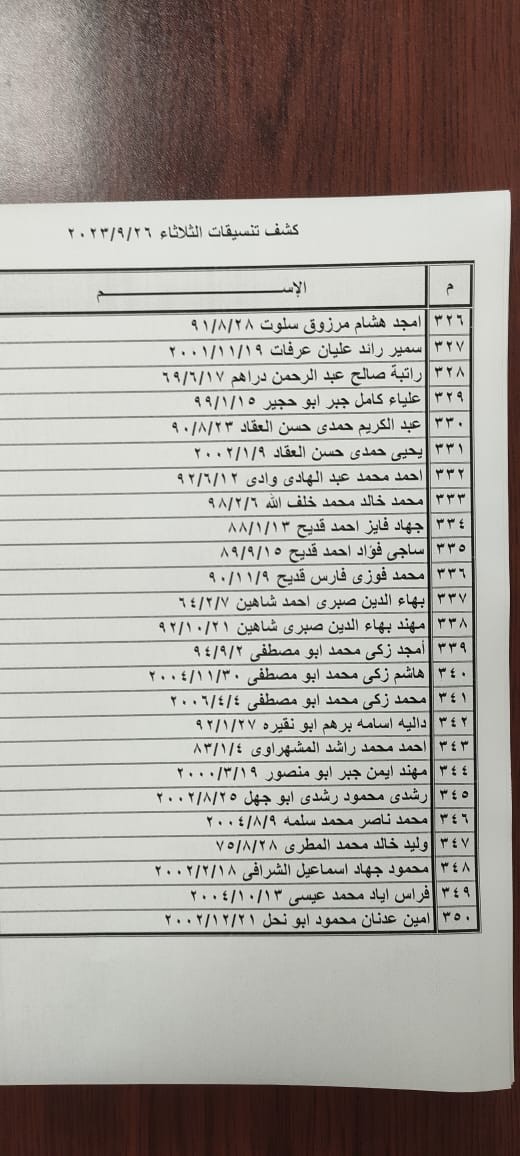 كشف تنسيقات الثلاثاء ٢٠٢٣/٩/٢٦
م الإســــــــــــــــــــــم
٣٢٦ امجد هشام مرزوق سلوت ٩١/٨/٢٨
٣٢٧ سمير رائد عليان عرفات ٢٠٠١/١١/١٩
٣٢٨ راتبة صالح عبد الرحمن دراهم ٦٩/٦/١٧
٣٢٩ علياء كامل جبر ابو حجير ٩٩/١/١٥
٣٣٠ عبد الكريم حمدى حسن العقاد ٩٠/٨/٢٣
٣٣١ يحيى حمدى حسن العقاد ٢٠٠٢/١/٩
٣٣٢ احمد محمد عبد الهادى وادى ٩٢/٦/١٢
٣٣٣ محمد خالد محمد خلف الله ٩٨/٢/٦
٣٣٤ جهاد فايز احمد قديح ٨٨/١/١٣
٣٣٥ ساجى فؤاد احمد قديح ٨٩/٩/١٥
٣٣٦ محمد فوزى فارس قديح ٩٠/١١/٩
٣٣٧ بهاء الدين صبرى احمد شاهين ٦٤/٢/٧
٣٣٨ مهند بهاء الدين صبرى شاهين ٩٢/١٠/٢١
٣٣٩ أمجد زكى محمد ابو مصطفى ٩٤/٩/٢
٣٤٠ هاشم زكى محمد ابو مصطفى ٢٠٠٤/١١/٣٠
٣٤١ محمد زكى محمد ابو مصطفى ٢٠٠٦/٤/٤
٣٤٢ داليه اسامه برهم ابو نقيره ٩٢/١/٢٧
٣٤٣ احمد محمد راشد المشهراوى ٨٣/١/٤
٣٤٤ مهند ايمن جبر ابو منصور ٢٠٠٠/٣/١٩
٣٤٥ رشدى محمود رشدى ابو جهل ٢٠٠٢/٨/٢٥
٣٤٦ محمد ناصر محمد سلمه ٢٠٠٤/٨/٩
٣٤٧ وليد خالد محمد المطرى ٧٥/٨/٢٨
٣٤٨ محمود جهاد اسماعيل الشرافى ٢٠٠٢/٢/١٨
٣٤٩ فراس اياد محمد عيسى ٢٠٠٤/١٠/١٣
٣٥٠ امين عدنان محمود ابو نحل ٢٠٠٢/١٢/٢١